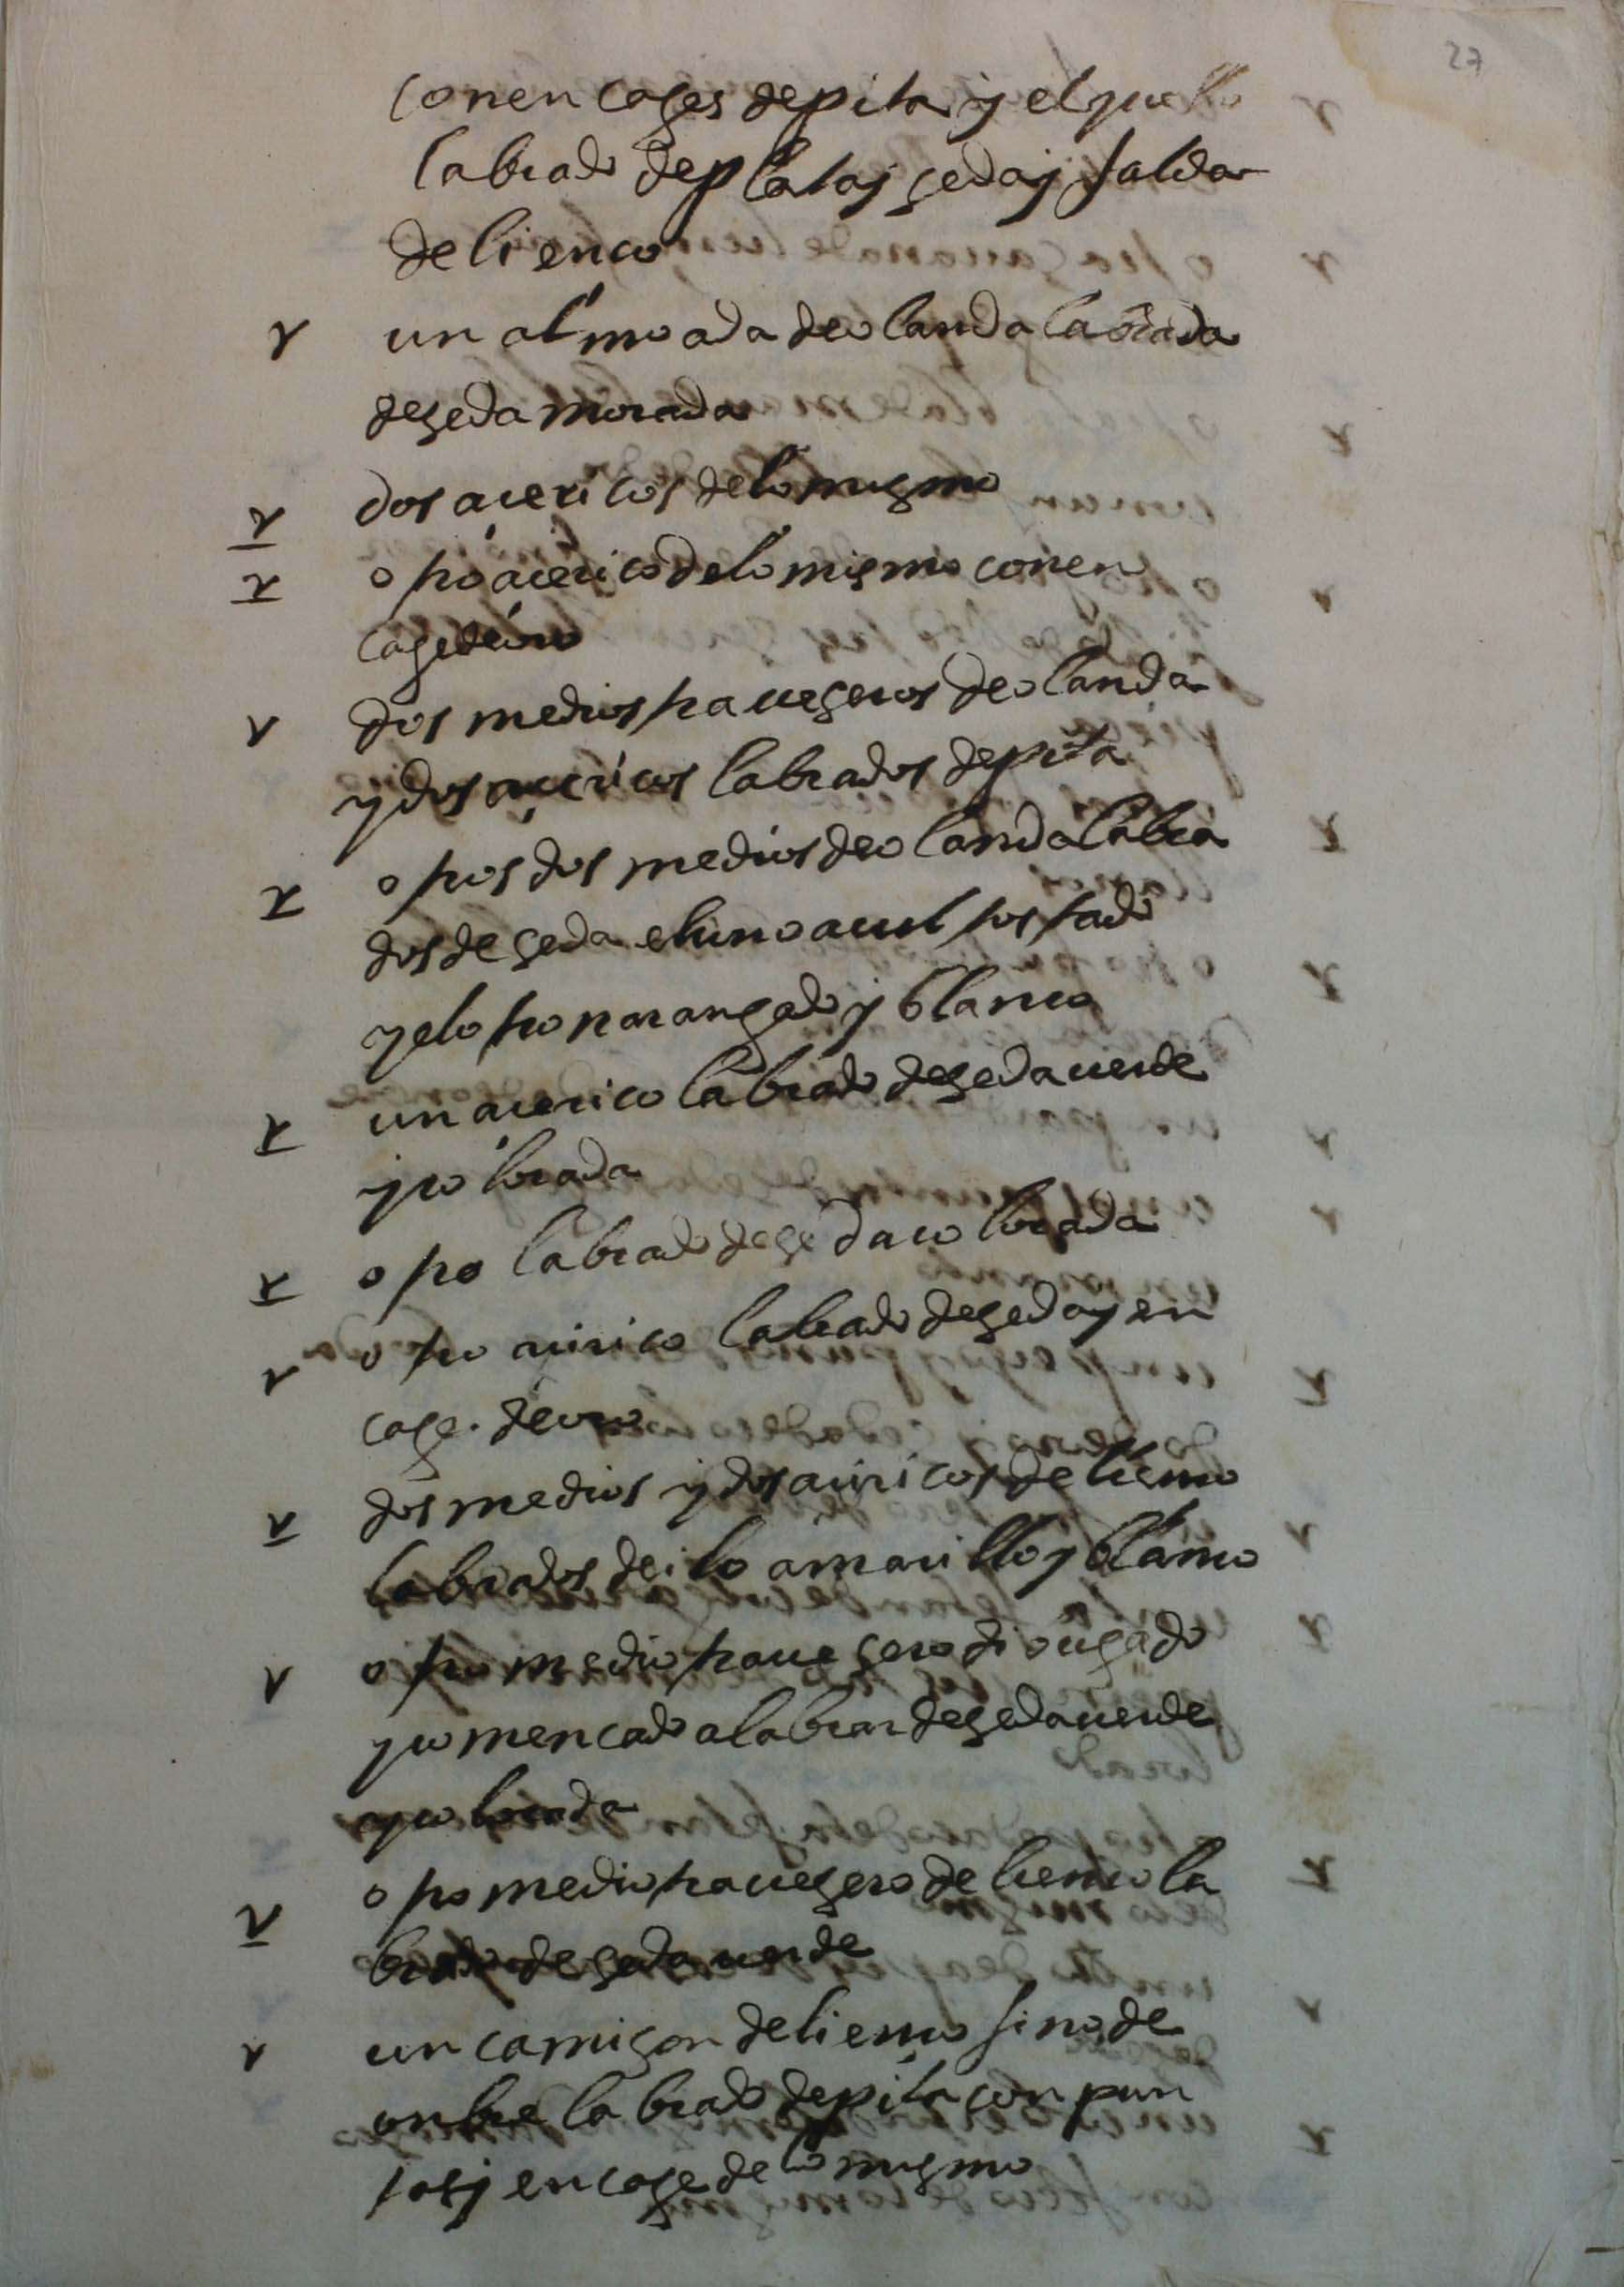 27
con encages de pita y el quello
labrado de plata y seda y falda
de lienço
v un almoada de olanda labrada
de seda morada
v dos açericos de lo mysmo
v otro açerico de lo mismo con en
cage de oro
v dos medios traueseros de olanda
y dos açericos labrados de pita
v otros dos medios de olanda labra
dos de seda el uno açul tostado
y el otro narangado y blanco
v un açerico labrado de seda uerde
y colorada
v otro labrado de seda colorada
v otro açirico labrado de seda y en
cage. de oro
v dos medios y dos açiricos de lienço
labrados de ilo amarillo y blanco
v otro medio trauesero dibugado
y comencado a labrar de seda uerde
y colorada
v otro medio trauesero de lienço la
brado de seda uerde
v un camison de lienço fino de
onbre labrado de pita con pun
tas y encage de lo mysmo